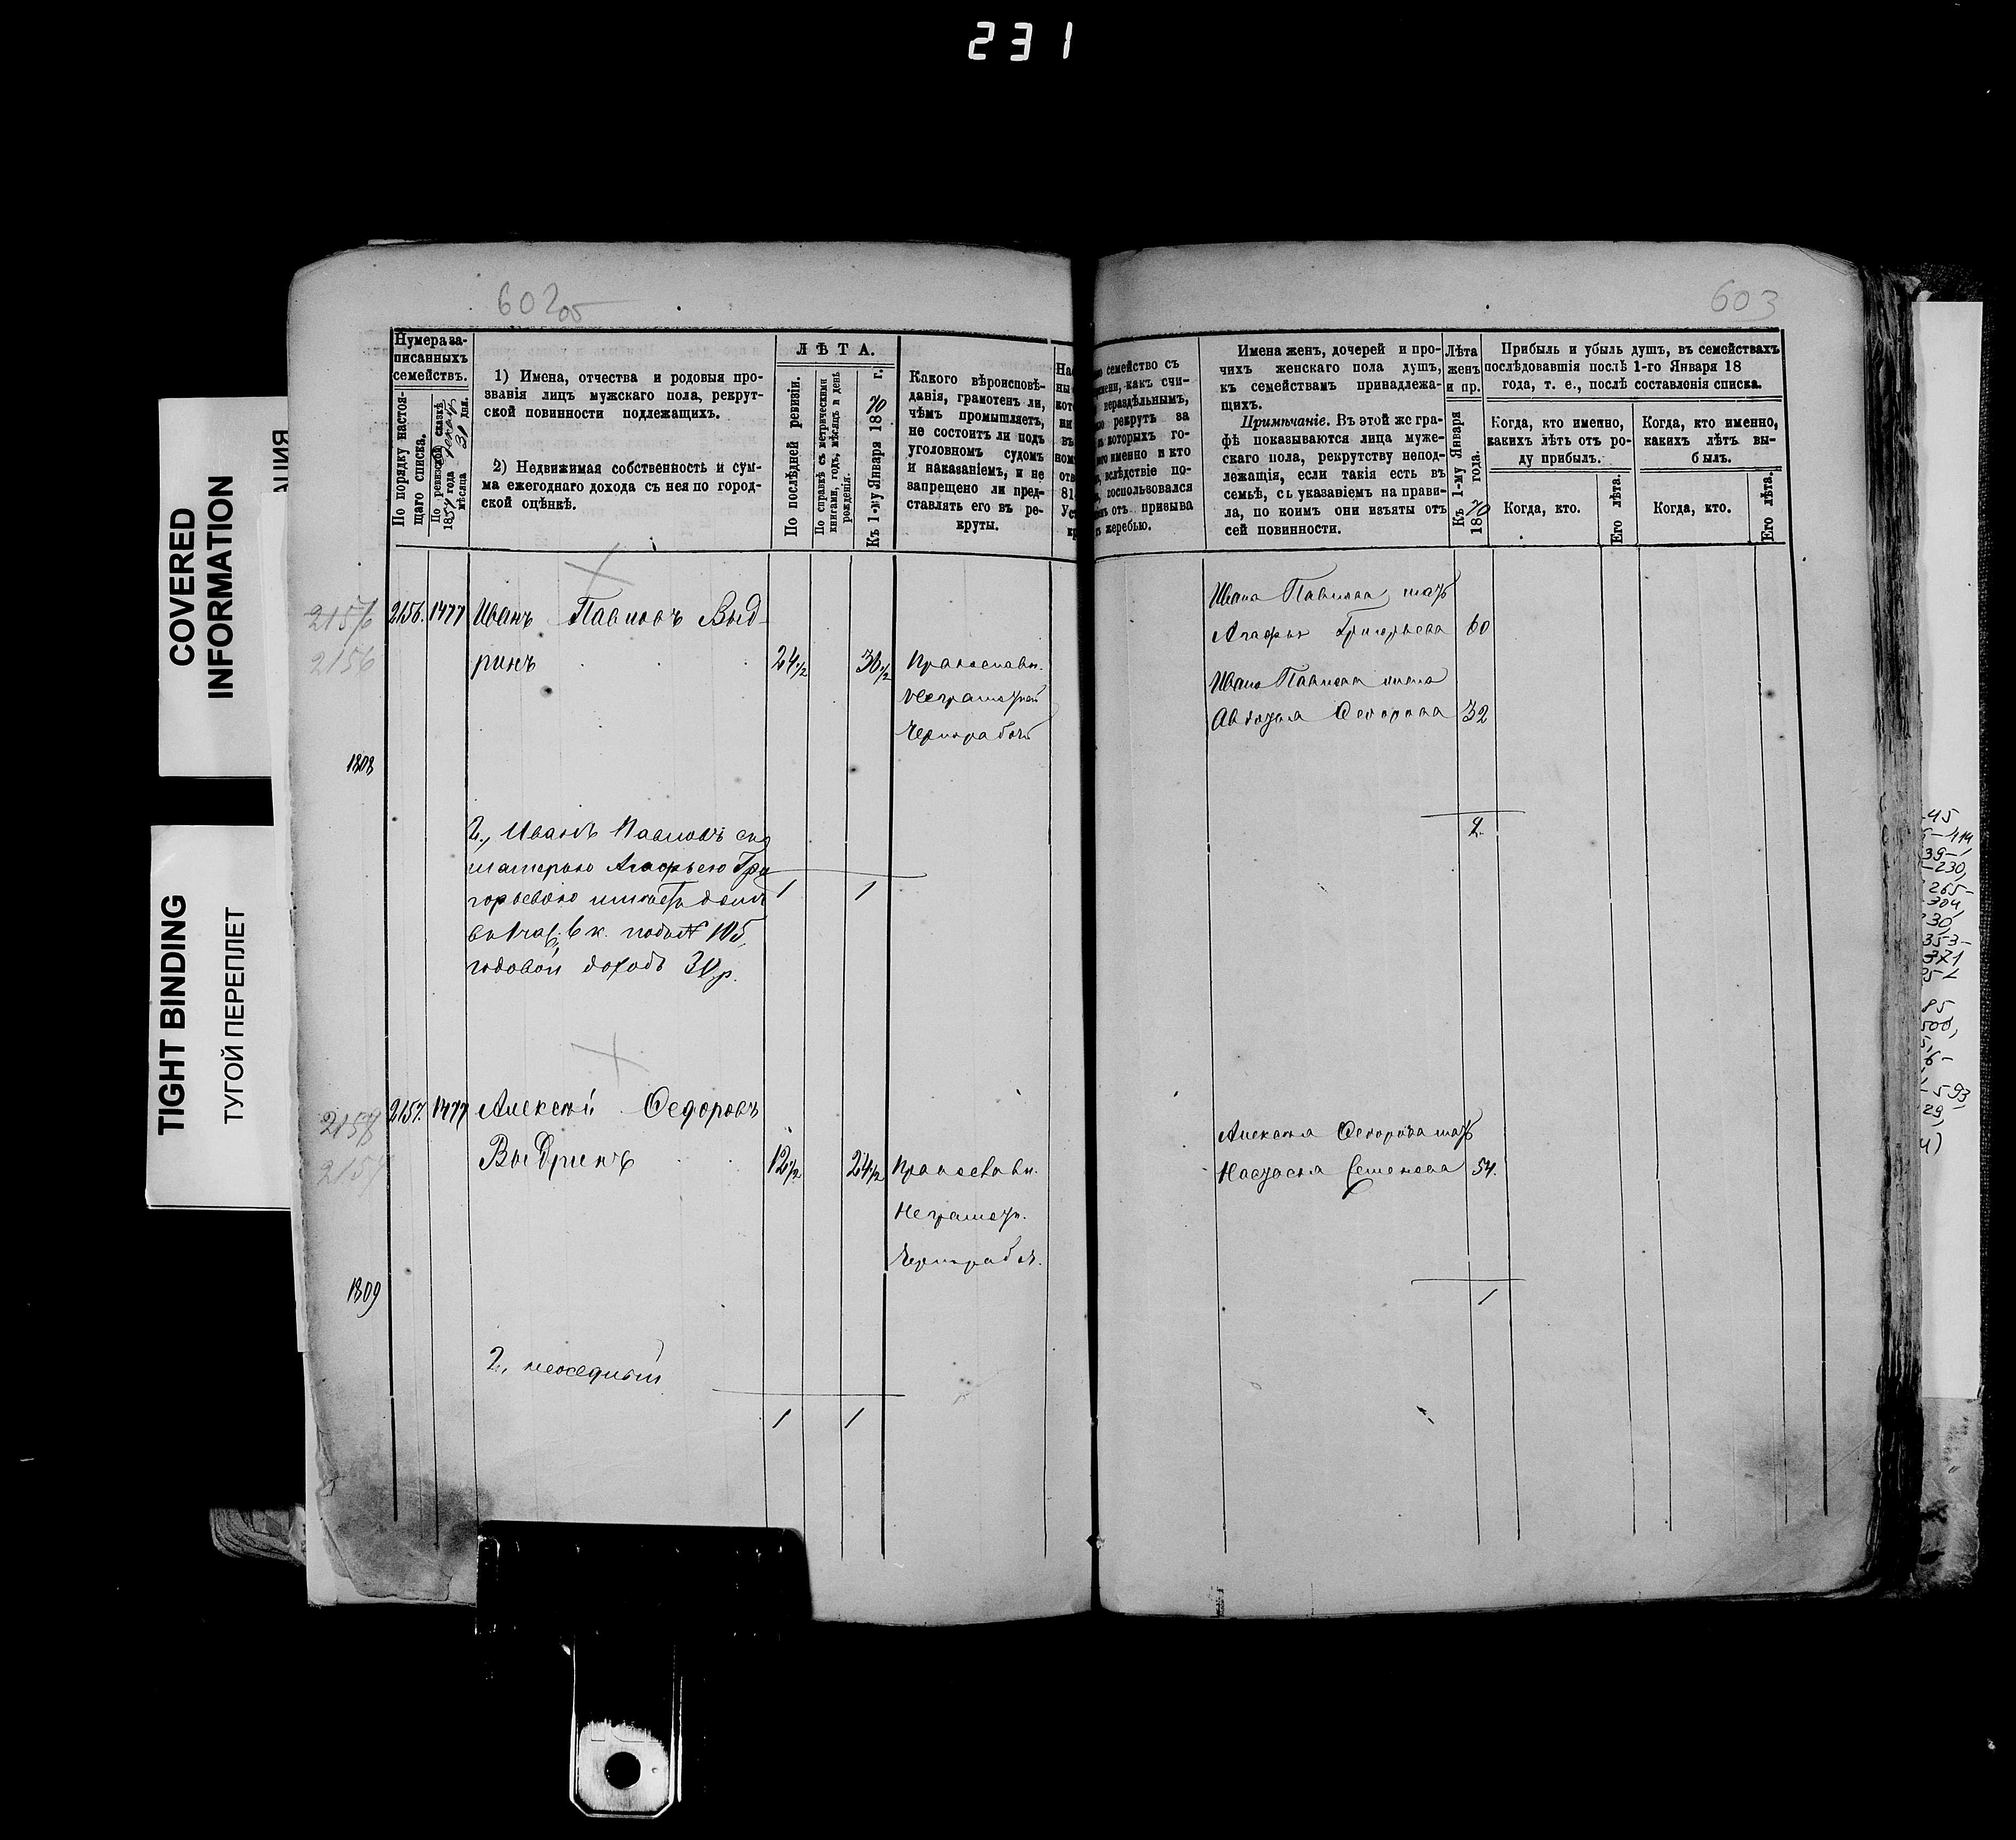 231
COVERED
INFORMATION
АЦИЯ
TIGHT BINDING
ТУГОЙ ПЕРЕПЛЕТ
602об
603
Нумера за-
писанныхъ
семействъ.
По порядку настоя-
щаго списка.
По ревизской сказкѣ
185 года
мѣсяца 31 дня.
1) Имена, отчества и родовыя про-
званія лицъ мужскаго пола, рекрут-
ской повинности подлежащихъ.
2) Недвижимая собственность и сум-
ма ежегоднаго дохода съ нея по город-
ской оцѣнкѣ.
ЛѢТА.
По послѣдней ревизіи.
По справкѣ съ метрическими
книгами, годъ, мѣсяцъ и день
рожденія.
Къ 1-му Января 1870 г.
Какого вѣроисповѣ-
данія, грамотенъ ли,
чѣмъ промышляетъ,
не состоитъ ли подъ
уголовнымъ судомъ
и наказаніемъ, и не
запрещено ли пред-
ставлять его въ ре-
круты.
семейство съ
какъ счи-
нераздѣльнымъ,
рекрутъ за
которыхъ го-
именно и кто
вслѣдствіе по-
воспользовался
отъ призыва
жеребью.
Имена женъ, дочерей и про-
чихъ женскаго пола душъ,
къ семействамъ принадлежа-
щихъ.
Примѣчаніе. Въ этой же гра-
фѣ показываются лица муже-
скаго пола, рекрутству непод-
лежащія, если такія есть въ
семьѣ, съ указаніемъ на прави-
ла, по коимъ они изъяты отъ
сей повинности.
Лѣта
женъ
и пр.
Къ 1-му Января
1870 года.
Прибыль и убыль душъ, въ семействахъ
послѣдовавшія послѣ 1-го Января 18
года, т. е., послѣ составленія списка.
Когда, кто именно,
какихъ лѣтъ отъ ро-
ду прибылъ.
Когда, кто именно,
какихъ лѣтъ вы-
былъ.
Когда, кто.
Его лѣта.
Когда, кто.
Его лѣта.
2156
2156
2156. 1477 Иванъ Павловъ Выд-
ринъ 24 1/2 36 1/2 Православн.
неграмотный
Чернорабоч
1808
Ивана Павлова мать
Агафья Григорьева 60
Ивана Павлова жена
Авдотья Федорова 32
2.
2., Иванъ Павловъ съ
матерью Агафьею Гри
горьевою имѣетъ домъ
въ 1 час. 6 к. подъ № 105,
годовой доходъ 30 р.
1 1
2157
2157
2157. 1477 Алексѣй Федоровъ
Выдринъ 12 1/2 24 1/2 Православн.
Неграмотн.
Чернорабоч.
1809
Алексѣя Федорова мать
Настасья Семенова 54.
1
2, неоседлый
1 1